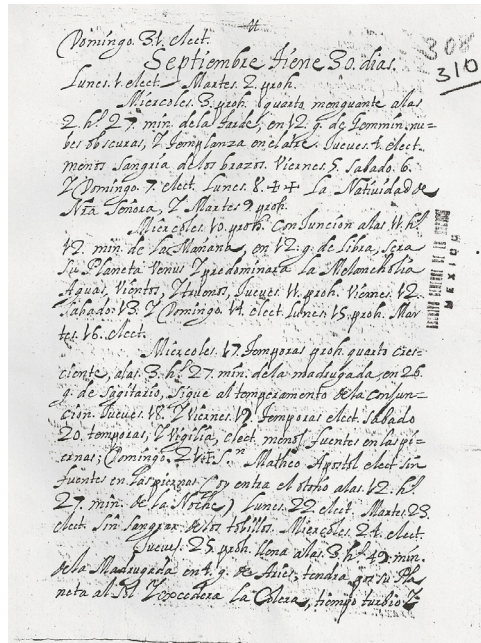 11
308
310
Domingo. 31. elect.
Septiembre tiene 30. dias.
Lunes. 1. elect. Martes. 2. proh.
Miercoles. 3. proh. quarto menguante a las
2. hs. 27. min. de la tarde, en 12. g. de Gemmin. nu-
bes obscuras, Y templanza en el aire. Jueves. 4. elect.
menos Sangria de los brazos. Viernes. 5. Sabado. 6.
Y Domingo. 7. elect. Lunes. 8. ++ La Natividad de
Nra Señora, Y Martes 9. proh.
Miercoles. 10. proh. Conjuncion a las 11. hs.
12. min. de La Mañana, en 12. g. de Libra, sera
su Planeta Venus Y predominara La Melancholia
Aguas, Vientos, Y truenos, Jueves. 11. proh. Viernes. 12.
Sabado. 13. Y Domingo. 14. elect. Lunes. 15. proh. Mar
tes. 16. elect.
Miercoles. 17. temporas proh. quarto cres-
ciente, a las. 3. hs. 27. min. de la madrugada, en 26
g. de Sagitario, Sigue al temperamento de la conjun-
cion. Jueves. 18. Y Viernes. 19. temporas elect. Sabado
20. temporas, Y Vigilia, elect. menos fuentes en las pi-
ernas; Domingo. 21. + Sn Matheo Apostol elect. sin
fuentes en las piernas (oy entra el otoño a las. 12. hs.
27. min. de la Noche) Lunes. 22. elect. Martes. 23.
elect. Sin Sangrar de los tobillos. Miercoles. 24. elect.
Jueves. 25. proh. llena a las. 3. hs. 49. min.
de la Madrugada en 4. g. de Aries, tendra por su Pla
neta al Sol Y excedera La Colera, tiempo turbio Y
MEXICO